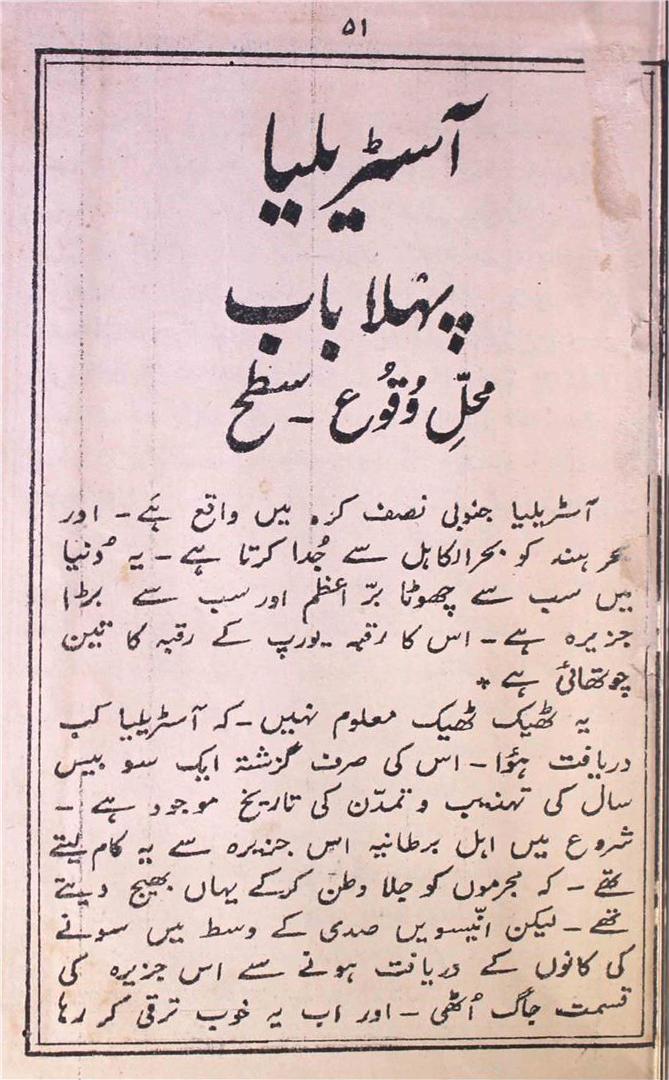 ۵۱
آسٹریلیا
پہلا باب
محلِّ وُقُوع ۔ سطح
آسٹریلیا جنوبی نصف کرہ میں واقع ہَے ۔ اور
بحر ہند کو بحرالکاہل سے جُدا کرتا ہے ۔ یہ دُنیا
میں سب سے چھوٹا برِّ اعظم اور سب سے بڑا
جزیرہ ہے ۔ اس کا رقبہ یورپ کے رقبہ کا تین
چوتھائی ہے *
یہ ٹھیک ٹھیک معلوم نہیں ۔ کہ آسٹریلیا کب
دریافت ہؤا ۔ اس کی صرف گزشتہ ایک سو بیس
سال کی تہذیب و تمدّن کی تاریخ موجود ہے ۔
شروع میں اہل برطانیہ اس جزیرہ سے یہ کام لیتے
تھے ۔ کہ مجرموں کو جلا وطن کرکے یہاں بھیج دیتے
تھے ۔ لیکن انّیسویں صدی کے وسط میں سونے
کی کانوں کے دریافت ہونے سے اس جزیرہ کی
قسمت جاگ اُٹھی ۔ اور اب یہ خوب ترقی کر رہا